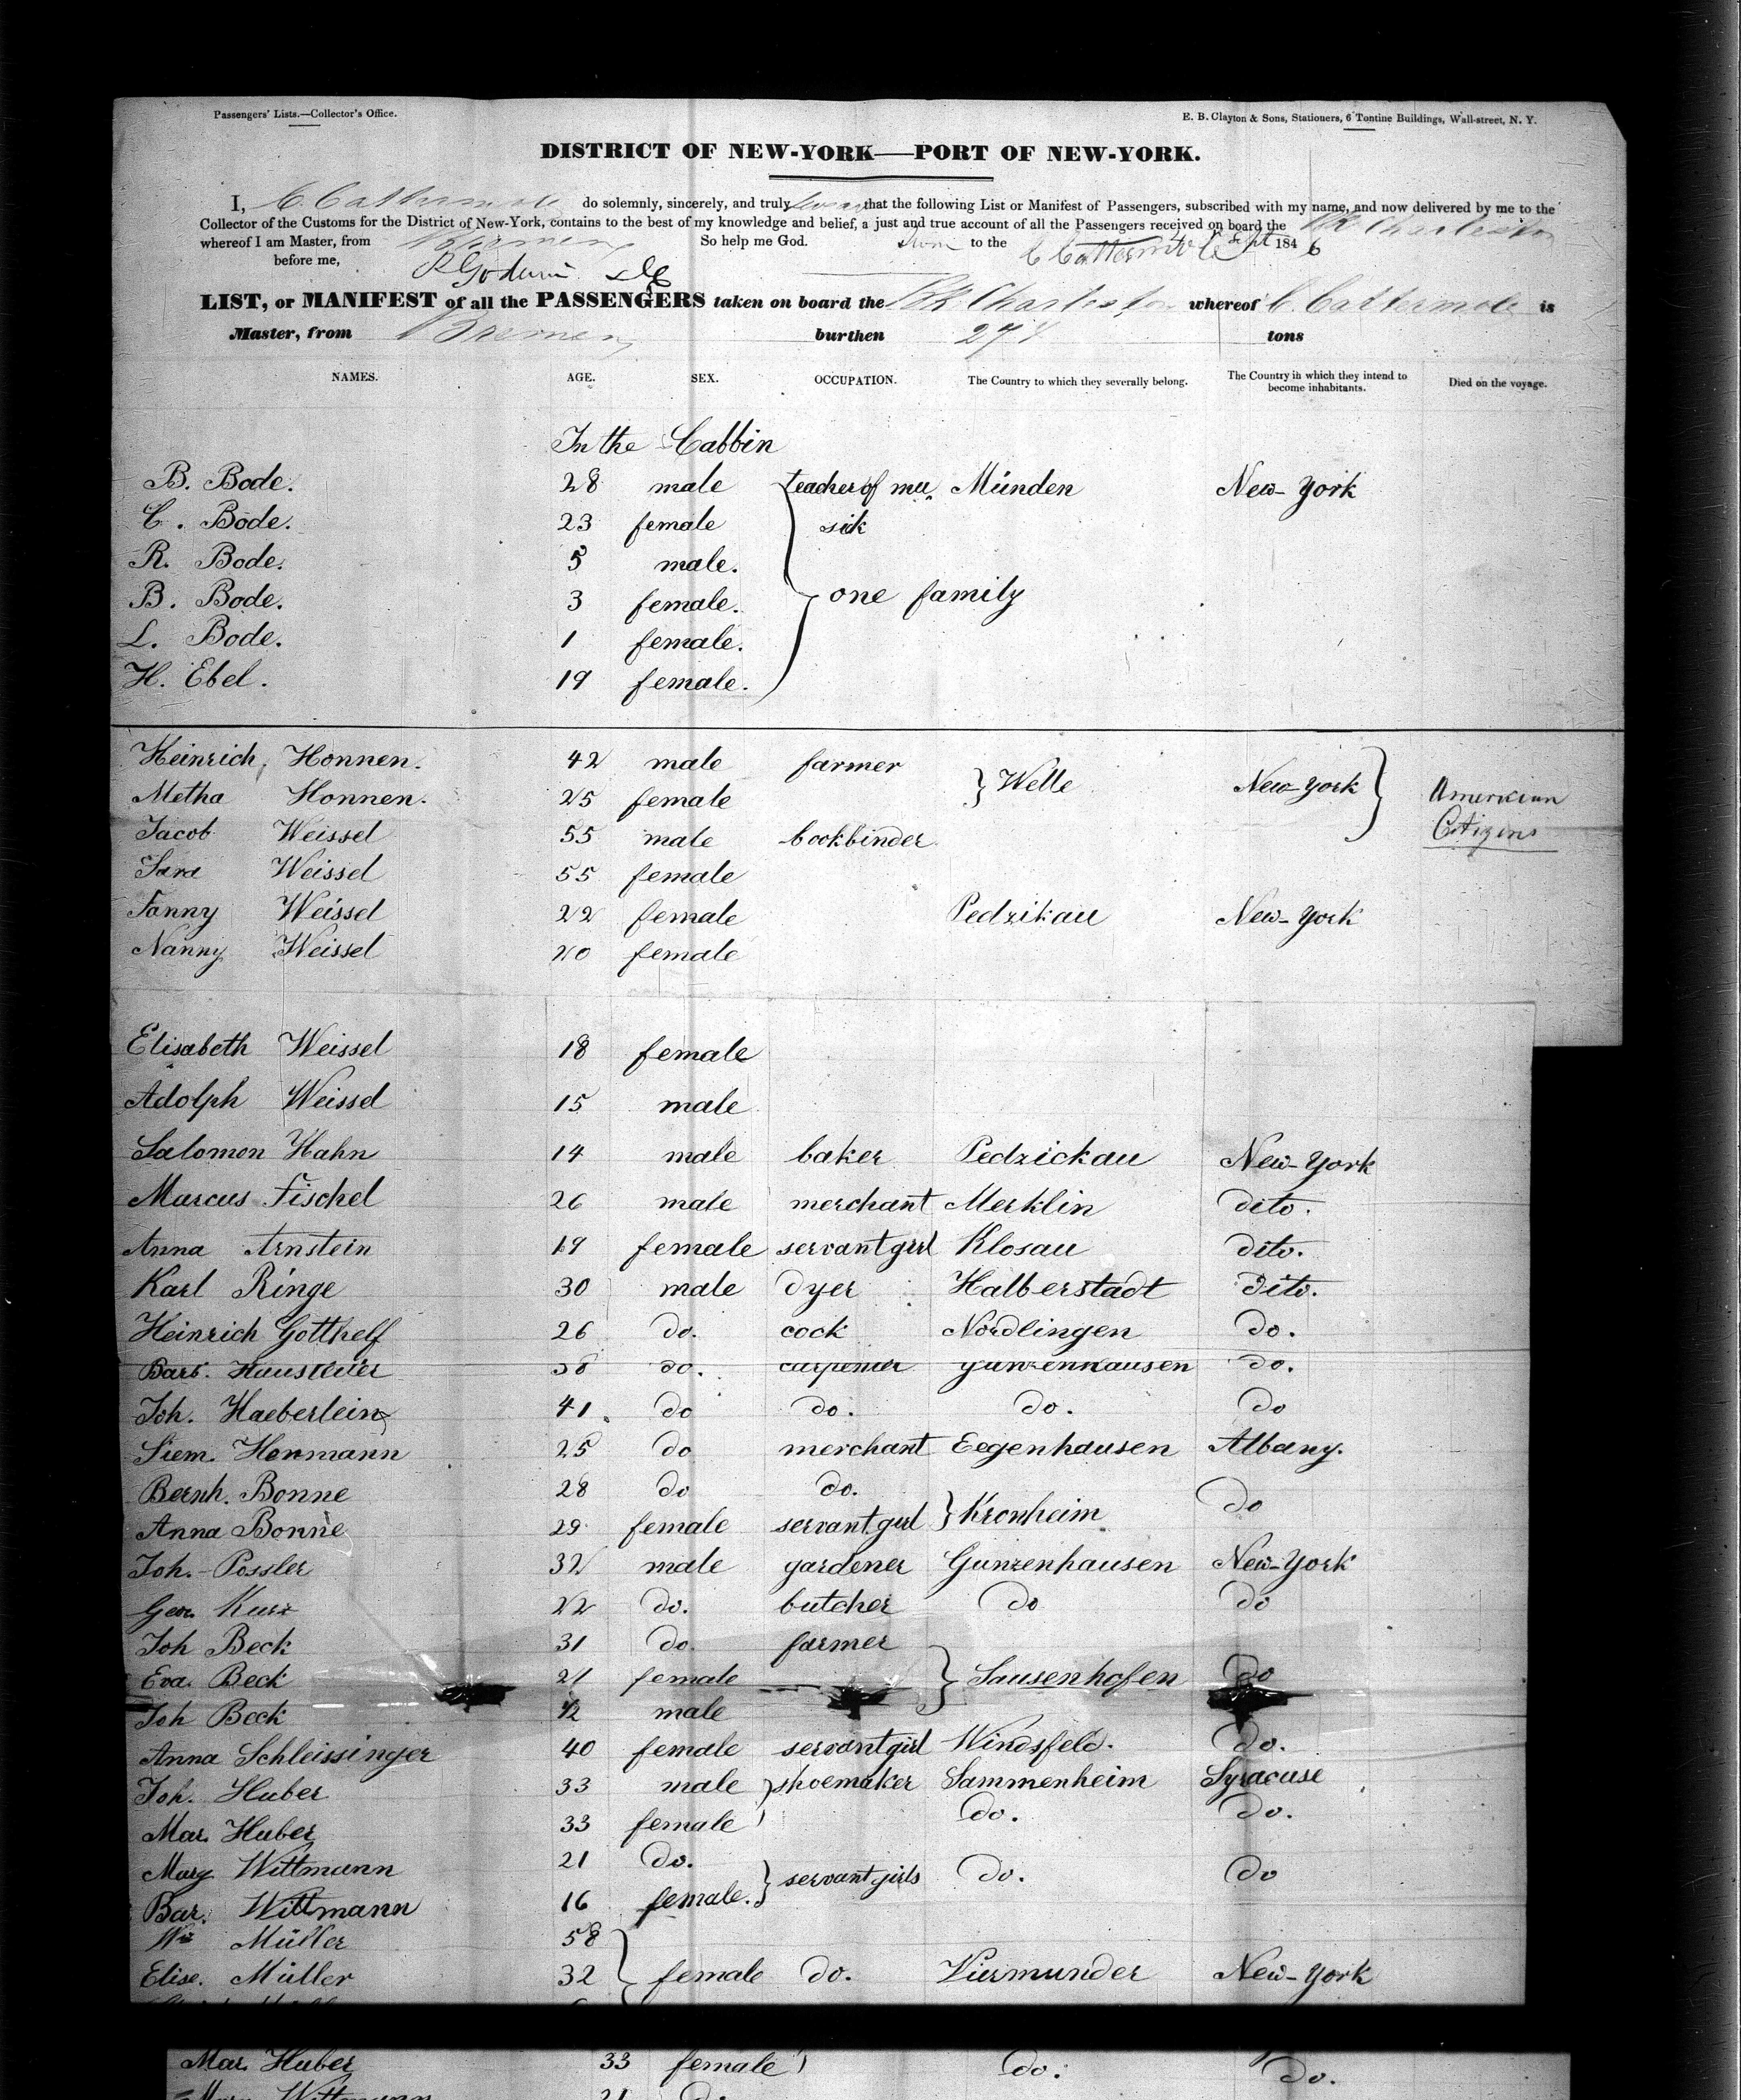 Passengers' Lists.—Collector's Office.
E. B. Clayton & Sons, Stationers, 6 Tontine Buildings, Wall-street, N. Y.
DISTRICT OF NEW-YORK—PORT OF NEW-YORK.
I, C Cattermole do solemnly, sincerely, and truly swear that the following List or Manifest of Passengers, subscribed with my name, and now delivered by me to the
Collector of the Customs for the District of New-York, contains to the best of my knowledge and belief, a just and true account of all the Passengers received on board the Charleston
whereof I am Master, from Bremen So help me God. to the Sept 1846
before me, C Cattermole
LIST, or MANIFEST of all the PASSENGERS taken on board the Charleston whereof C. Cattermole is
Master, from Bremen burthen tons
NAMES. AGE. SEX. OCCUPATION. The Country to which they severally belong. The Country in which they intend to become inhabitants. Died on the voyage.
In the Cabbin
B. Bode. 28 male teacher of mu Münden New-York
C. Bode. 23 female sik
R. Bode. 5 male.
B. Bode. 3 female. one family
L. Bode. 1 female.
H. Ebel. 19 female.
Heinrich Honnen. 42 male farmer Welle New-York American Citizens
Metha Honnen. 25 female
Jacob Weissel 55 male bookbinder
Sara Weissel 55 female
Fanny Weissel 22 female Pedzikau New-York
Nanny Weissel 20 female
Elisabeth Weissel 18 female
Adolph Weissel 15 male
Salomon Hahn 14 male baker Pedzickau New-York
Marcus Fischel 26 male merchant Merklin dito.
Anna Arnstein 19 female servant girl Klosau dito.
Karl Ringe 30 male dyer Halberstadt dito.
Heinrich Gotthelf 26 do. cock Nördlingen do.
Barb. 38 do. carpenter gunzenhausen do.
Joh. Haeberlein 41. do do. do. do
Siem. Hermann 25 do merchant Eegenhausen Albany.
Bernh. Bonne 28 do do. Kronheim do
Anna Bonne 29 female servant girl
Joh. Possler 32 male gardener Gunzenhausen New-York
Geo. Kurz 22 do. butcher do do
Joh Beck 31 do. farmer
Eva. Beck 21 female Sausenhofen do
Joh Beck male
Anna Schleissinger 40 female servant girl Windsfeld. do.
Joh. Huber 33 male shoemaker Sammenheim Syracuse
Mar. Huber 33 female do. do.
Marg Wittmann 21 do. servant girls do. do
Bar. Wittmann 16 female.
Müller 58
Elise. Müller 32 female do. Viermunder New-York
Mar. Huber 33 female do. do.